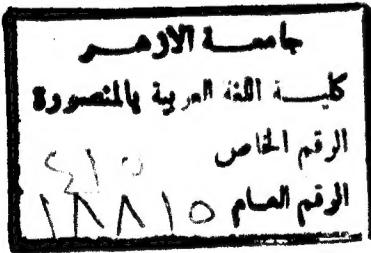 جامعة الازهر
كلية اللغة العربية بالمنصورة
الرقم الخاص ٤١٥
الرقم العام ١٨٨١٥